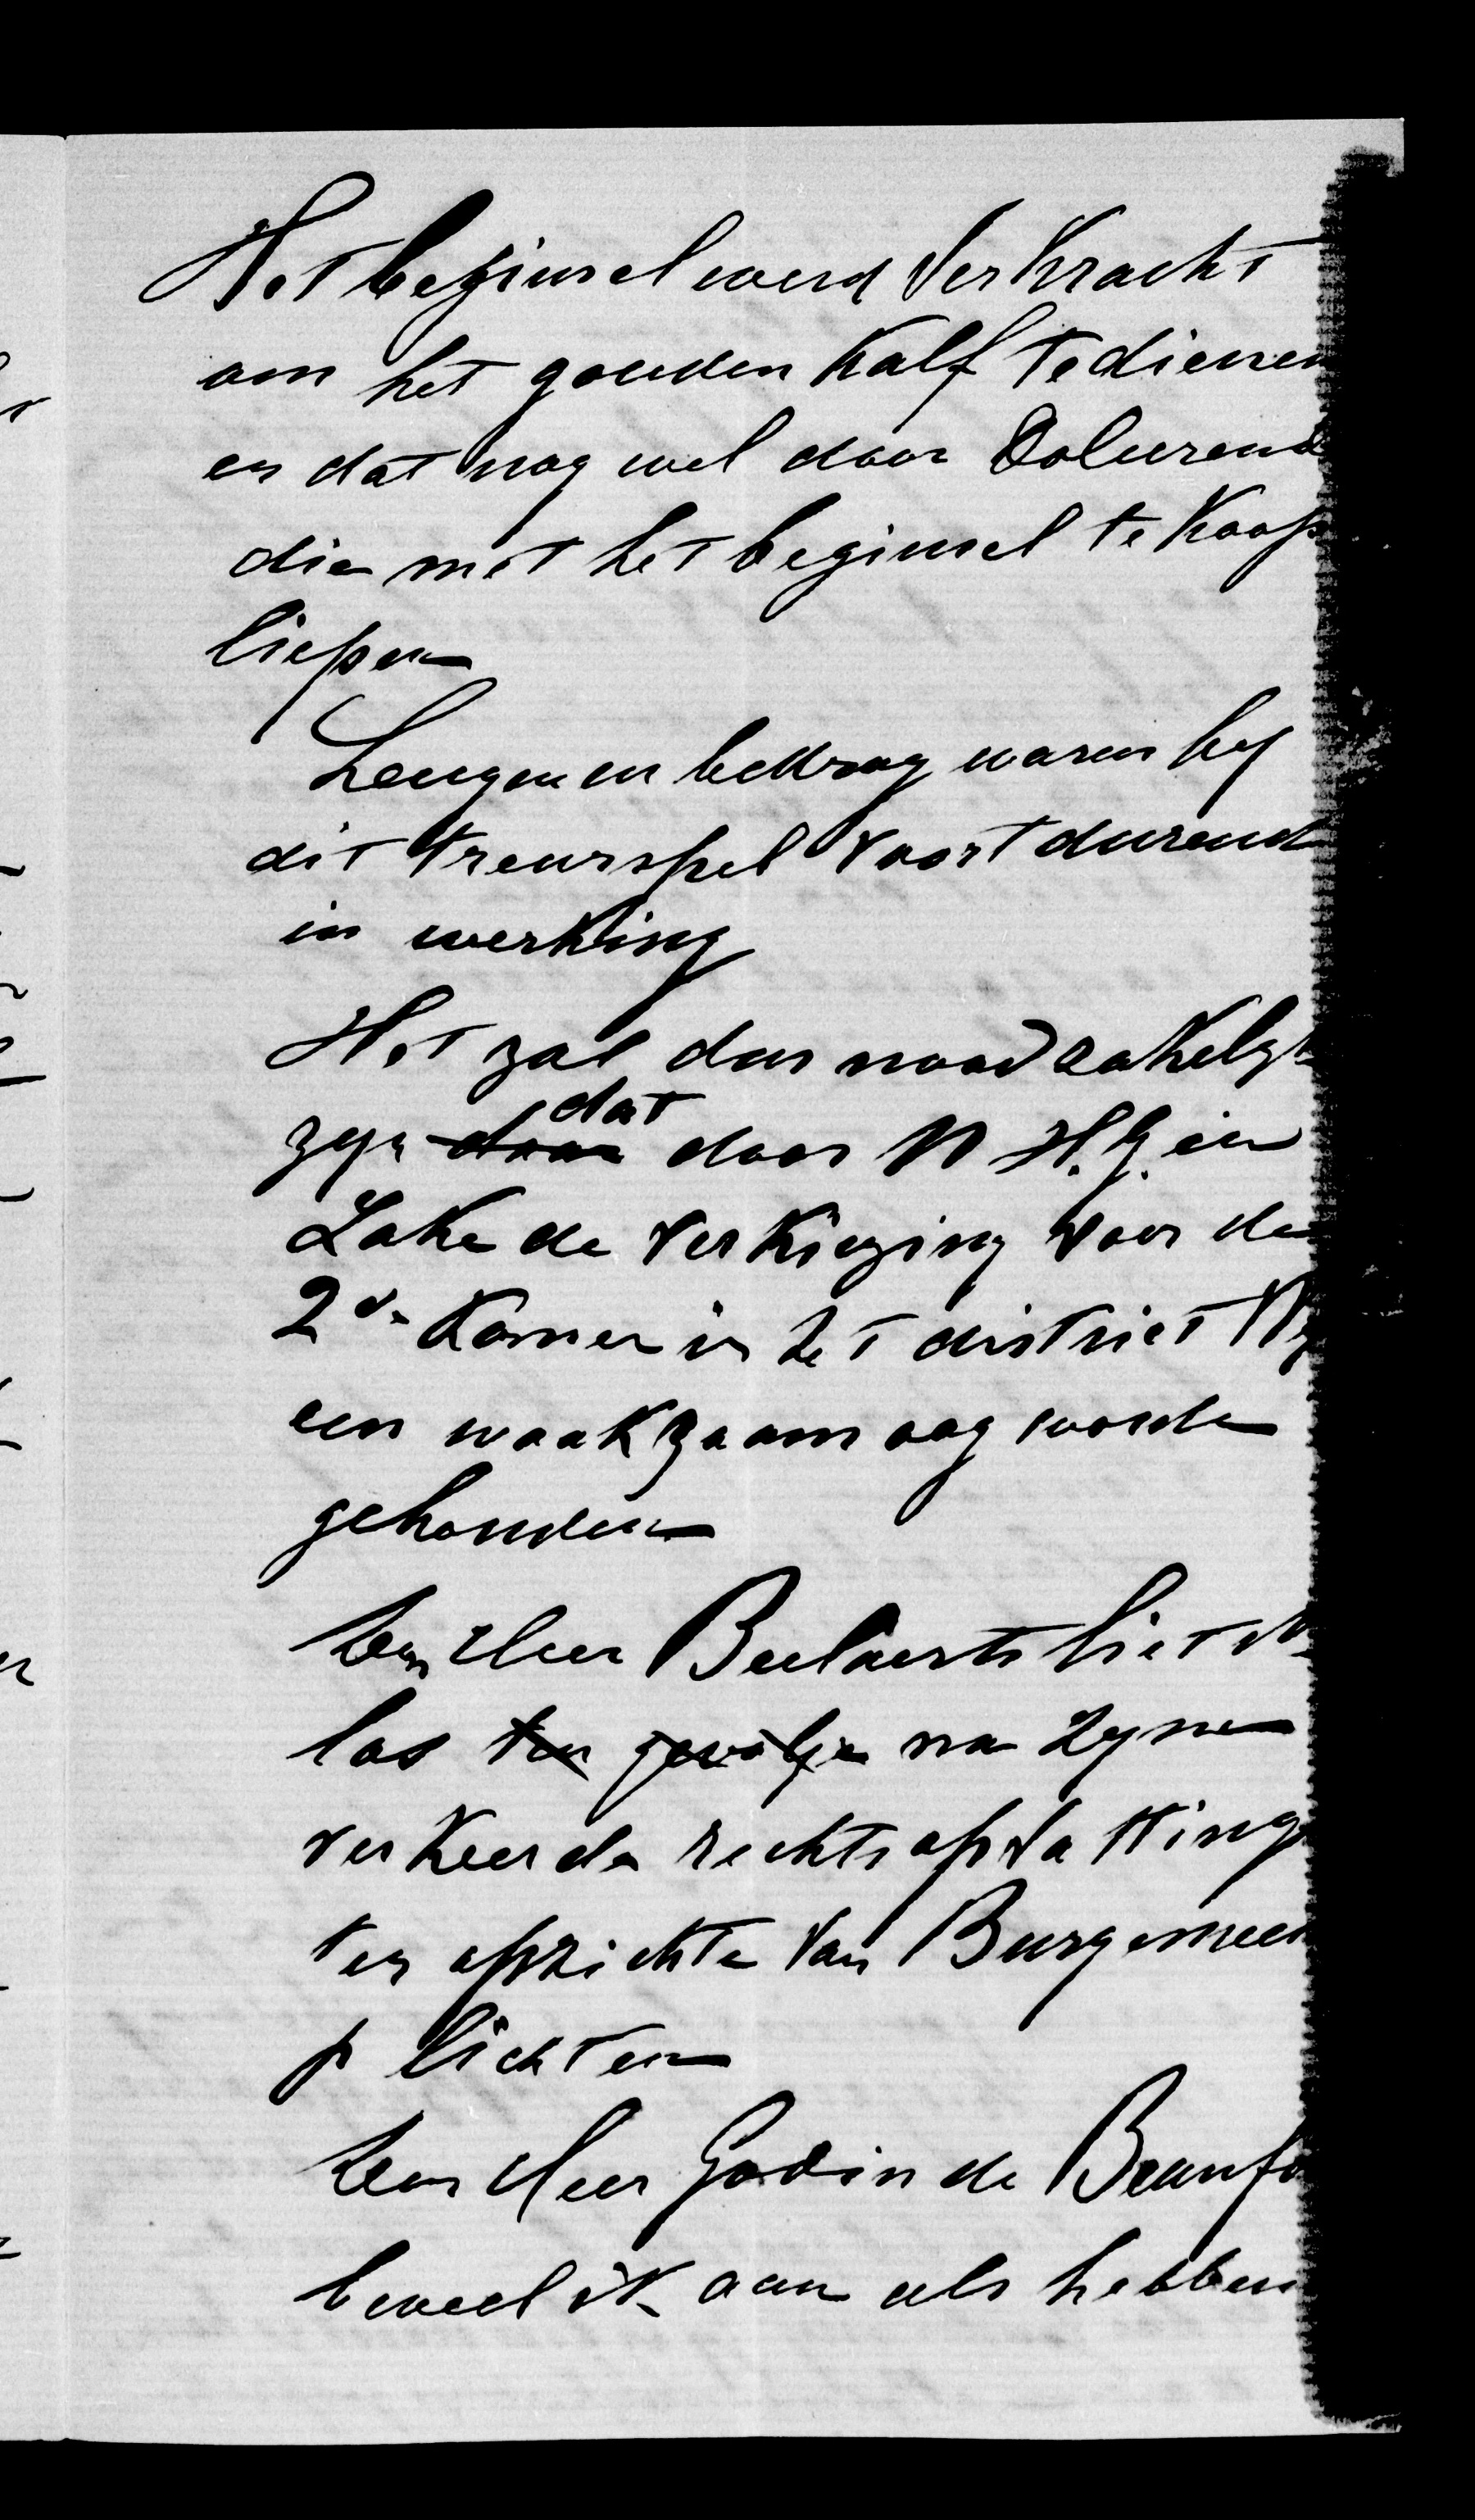 Het beginsel werd verkracht
om het gouden Kalf te dienen
en dat nog wel door Dolerend
die met het beginsel te Koop
liepen
Leugen en bedrog waren by
dit treurspel voortdurend
in werking
Het zal dus noodzakelyk
zyn door dat door N H.G. in
Zake de verkiezing voor de
2de Kamer in het district Ny
een waakzaam oog worde
gehouden
Den Heer Beelaerts liet
los ten gevolge na zyne
verkeerde rechtsopvatting
ten opzichte van Burgemees
plichten
Den Heer Godin de Beaufo
beveel ik aan als hebben